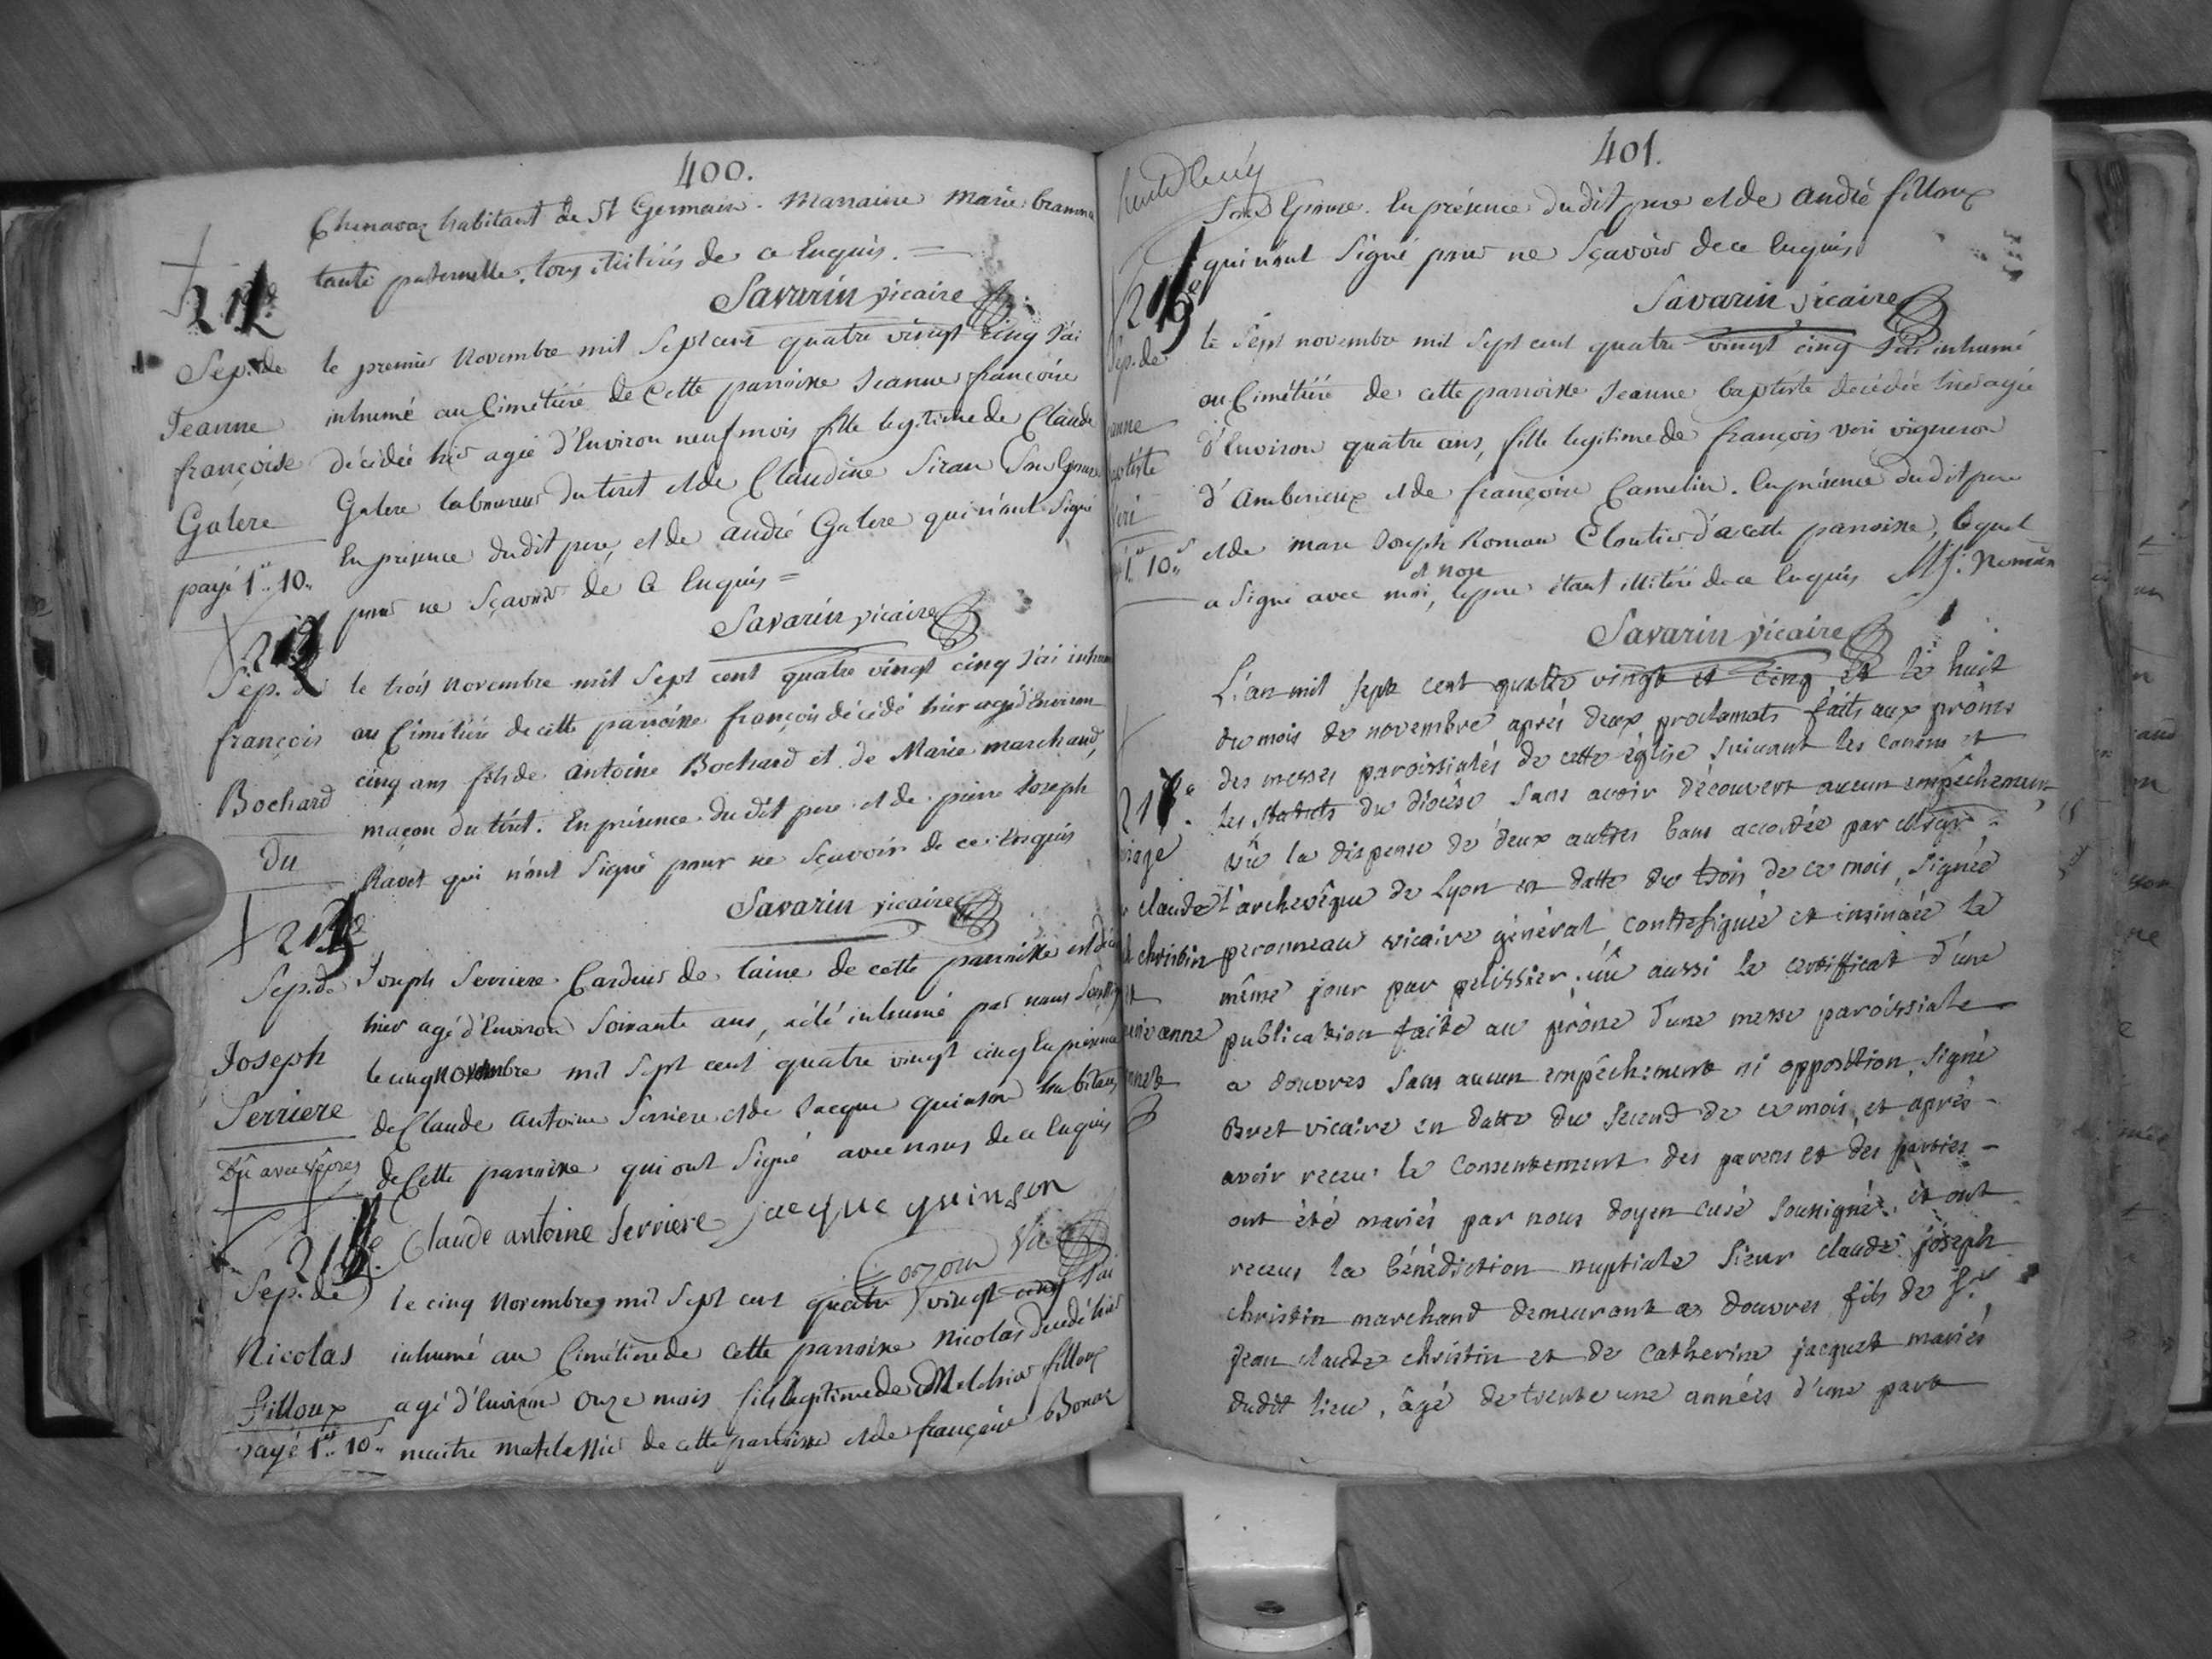 400.
Chenavaz habitant de St Germain. Marraine Marie
tante paternelle. tous illitérés de ce Enquis. =
Savarin vicaire
Sep. de
Jeanne
françoise
Galere
payé 1.. 10..
le premier Novembre mil Sept cent quatre vingt cinq J'ai
inhumé au Cimétiére de Cette parroisse Jeanne françoise
décédée hier agée d'Environ neuf mois fille legitime de Claude
Galere laboureur du tiret et de Claudine Siran Son Epouse
En présence dudit pere, et de andré Galere qui n'ont Signé
pour ne Sçavoir de Ce Enquis =
Savarin vicaire
Sep. de
françois
Bochard
Du
le trois Novembre mil Sept cent quatre vingt cinq J'ai
au Cimétiére de cette parroisse françois décédé hier agé d'Environ
cinq ans fils de Antoine Bochard et de Marie marchand,
maçon du tiret. En présence dudit pere et de pierre Joseph
Ravet qui n'ont Signé pour ne Sçavoir de ce Enquis
Savarin vicaire
Sep. de
Joseph
Serriere
Dû avec vêpres
Joseph Serriere Cardeur de laine de cette parroisse
hier agé d'Environ Soixante ans, a été inhumé par nous
le cinq Novembre mil Sept cent quatre vingt cinq En présence
de Claude Antoine Serriere et de Jacque quinson habitans
de Cette parroisse qui ont Signé avec nous de ce Enquis
Claude antoine Serriere jacque quinson
Cozon Vic
Sep. de
Nicolas
Filloux
payé 1.. 10..
le cinq Novembre mil Sept cent quatre vingt cinq J'ai
inhumé au Cimétiére de cette parroisse Nicolas décédé hier
agé d'Environ Onze mois fils legitime de Melchior filloux
maitre matelassier de cette parroisse et de françoise
401.
Son Epouse. En présence dudit pere et de andré filloux
qui n'ont Signé pour ne Sçavoir de ce Enquis
Savarin vicaire
Sep. de
le Sept novembre mil Sept cent quatre vingt cinq J'ai inhumé
au Cimétiére de cette parroisse Jeanne baptiste décédée hier agée
d'Environ quatre ans, fille legitime de françois veri vigneron
d'Amberieux et de françoise Camelin. En présence dudit pere
et de marc Joseph Roman Cloutier d'a cette parroisse, lequel
a Signé avec moi, et non le pere étant illitéré de ce Enquis M J. Roman
Savarin vicaire
L'an mil sept cent quatre vingt et cinq et le huit
du mois de novembre aprés deux proclamats faits aux prônes
des messes paroissiales de cette église suivant les canons et
les statuts du diocèse sans avoir découvert aucun empêchement
vû la dispense de deux autres bans accordée par Msgr
l'archevêque de Lyon en datte du trois de ce mois, signée
peronneau vicaire général, contresignée et insinuée le
même jour par pelissier. vû aussi le certifficat d'une
publication faite au prône d'une messe paroissiale
a douvres sans aucun empêchement ni opposition, signé
Buet vicaire en datte du second de ce mois, et aprés
avoir receu le consentement des parens et des parties
ont été mariés par nous doyen curé soussigné, et ont
receus la bénédiction nuptiale sieur claude joseph
christin marchand demeurant a douvres fils de Sr
jean claude christin et de catherine jacquet mariés
dudit lieu, âgé de trente une années d'une part